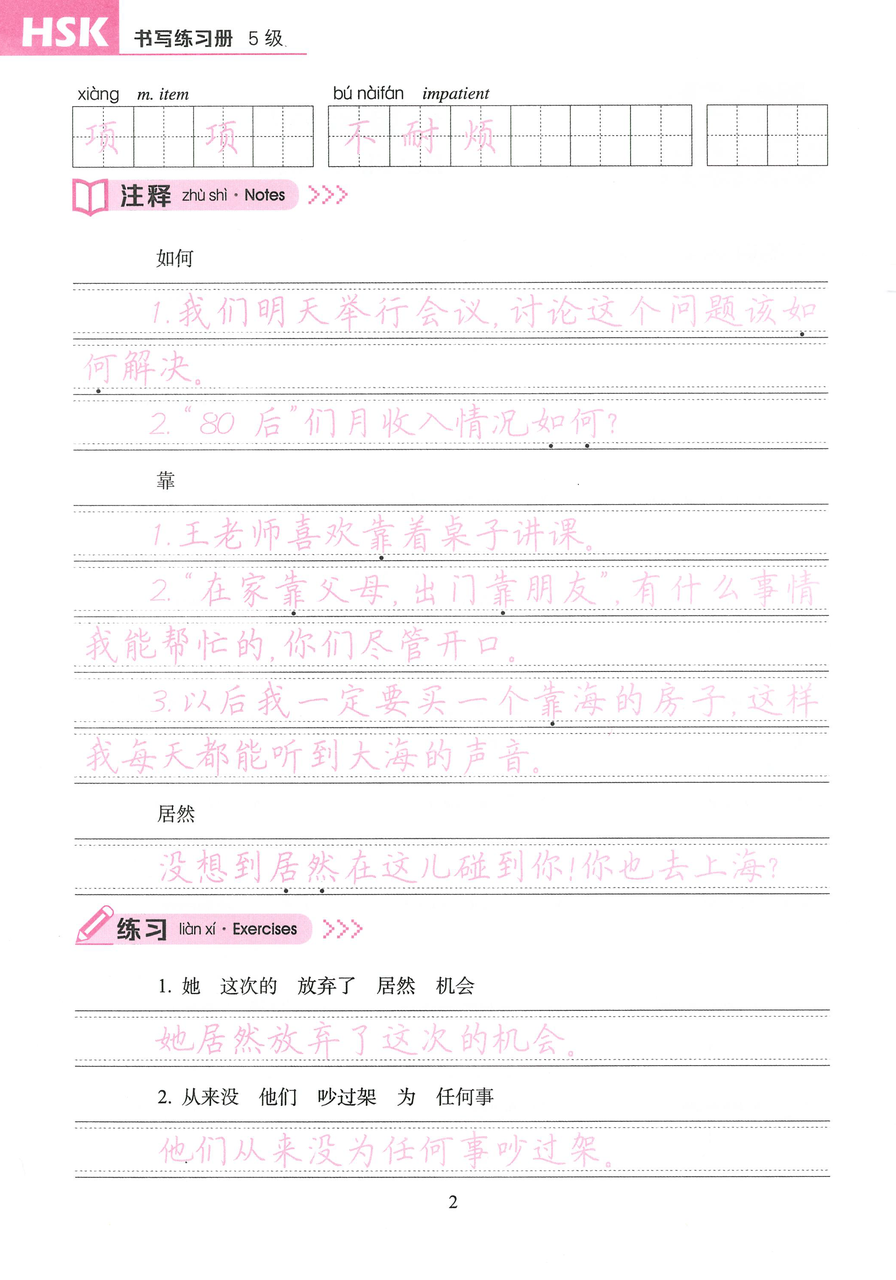 HSK 书写练习册 5 级
xiàng m. item bú nàifán impatient
项 项 不 耐 烦
注释 zhù shì · Notes
如何
1. 我们明天举行会议,讨论这个问题该如
何解决。
2. “80 后”们月收入情况如何?
靠
1. 王老师喜欢靠着桌子讲课。
2. “在家靠父母,出门靠朋友”,有什么事情
我能帮忙的,你们尽管开口。
3. 以后我一定要买一个靠海的房子,这样
我每天都能听到大海的声音。
居然
没想到居然在这儿碰到你!你也去上海?
练习 liàn xí · Exercises
1. 她 这次的 放弃了 居然 机会
她居然放弃了这次的机会。
2. 从来没 他们 吵过架 为 任何事
他们从来没为任何事吵过架。
2